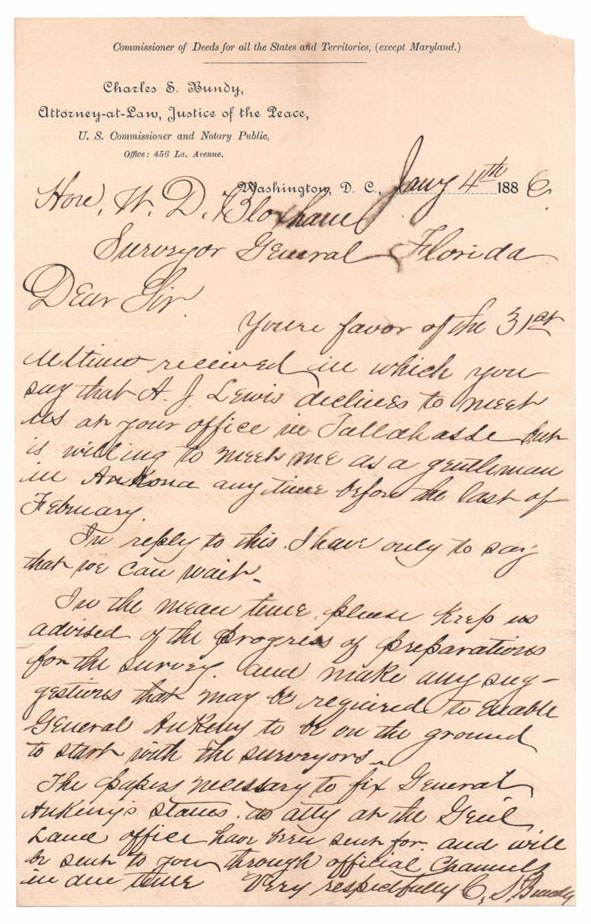 Commissioner of Deeds for all the States and Territories, (except Maryland.)
Charles S. Bundy,
Attorney-at-Law, Justice of the Peace,
U. S. Commissioner and Notary Public,
Office: 456 La. Avenue.
Washington, D. C., Jany 4th 1886.
Hon. W. D. Bloxham
Surveyor General Florida
Dear Sir.
Youre favor of the 31st
ultimo received in which you
say that A. J. Lewis declines to meet
us at your office in Tallahasse but
is willing to meet me as a gentleman
in Ankona any time before the last of
February.
In reply to this I have only to say
that we can wait.
In the mean time please keep us
advised of the progress of preparations
for the survey. and make any sug-
gestions that may be required to enable
General Ankeny to be on the ground
to start with the surveyors.
The papers necessary to fix General
Ankeny's status as atty at the Genl
Land office have been sent for. and will
be sent to you through official Channels
in due time Very respectfully C. S. Bundy